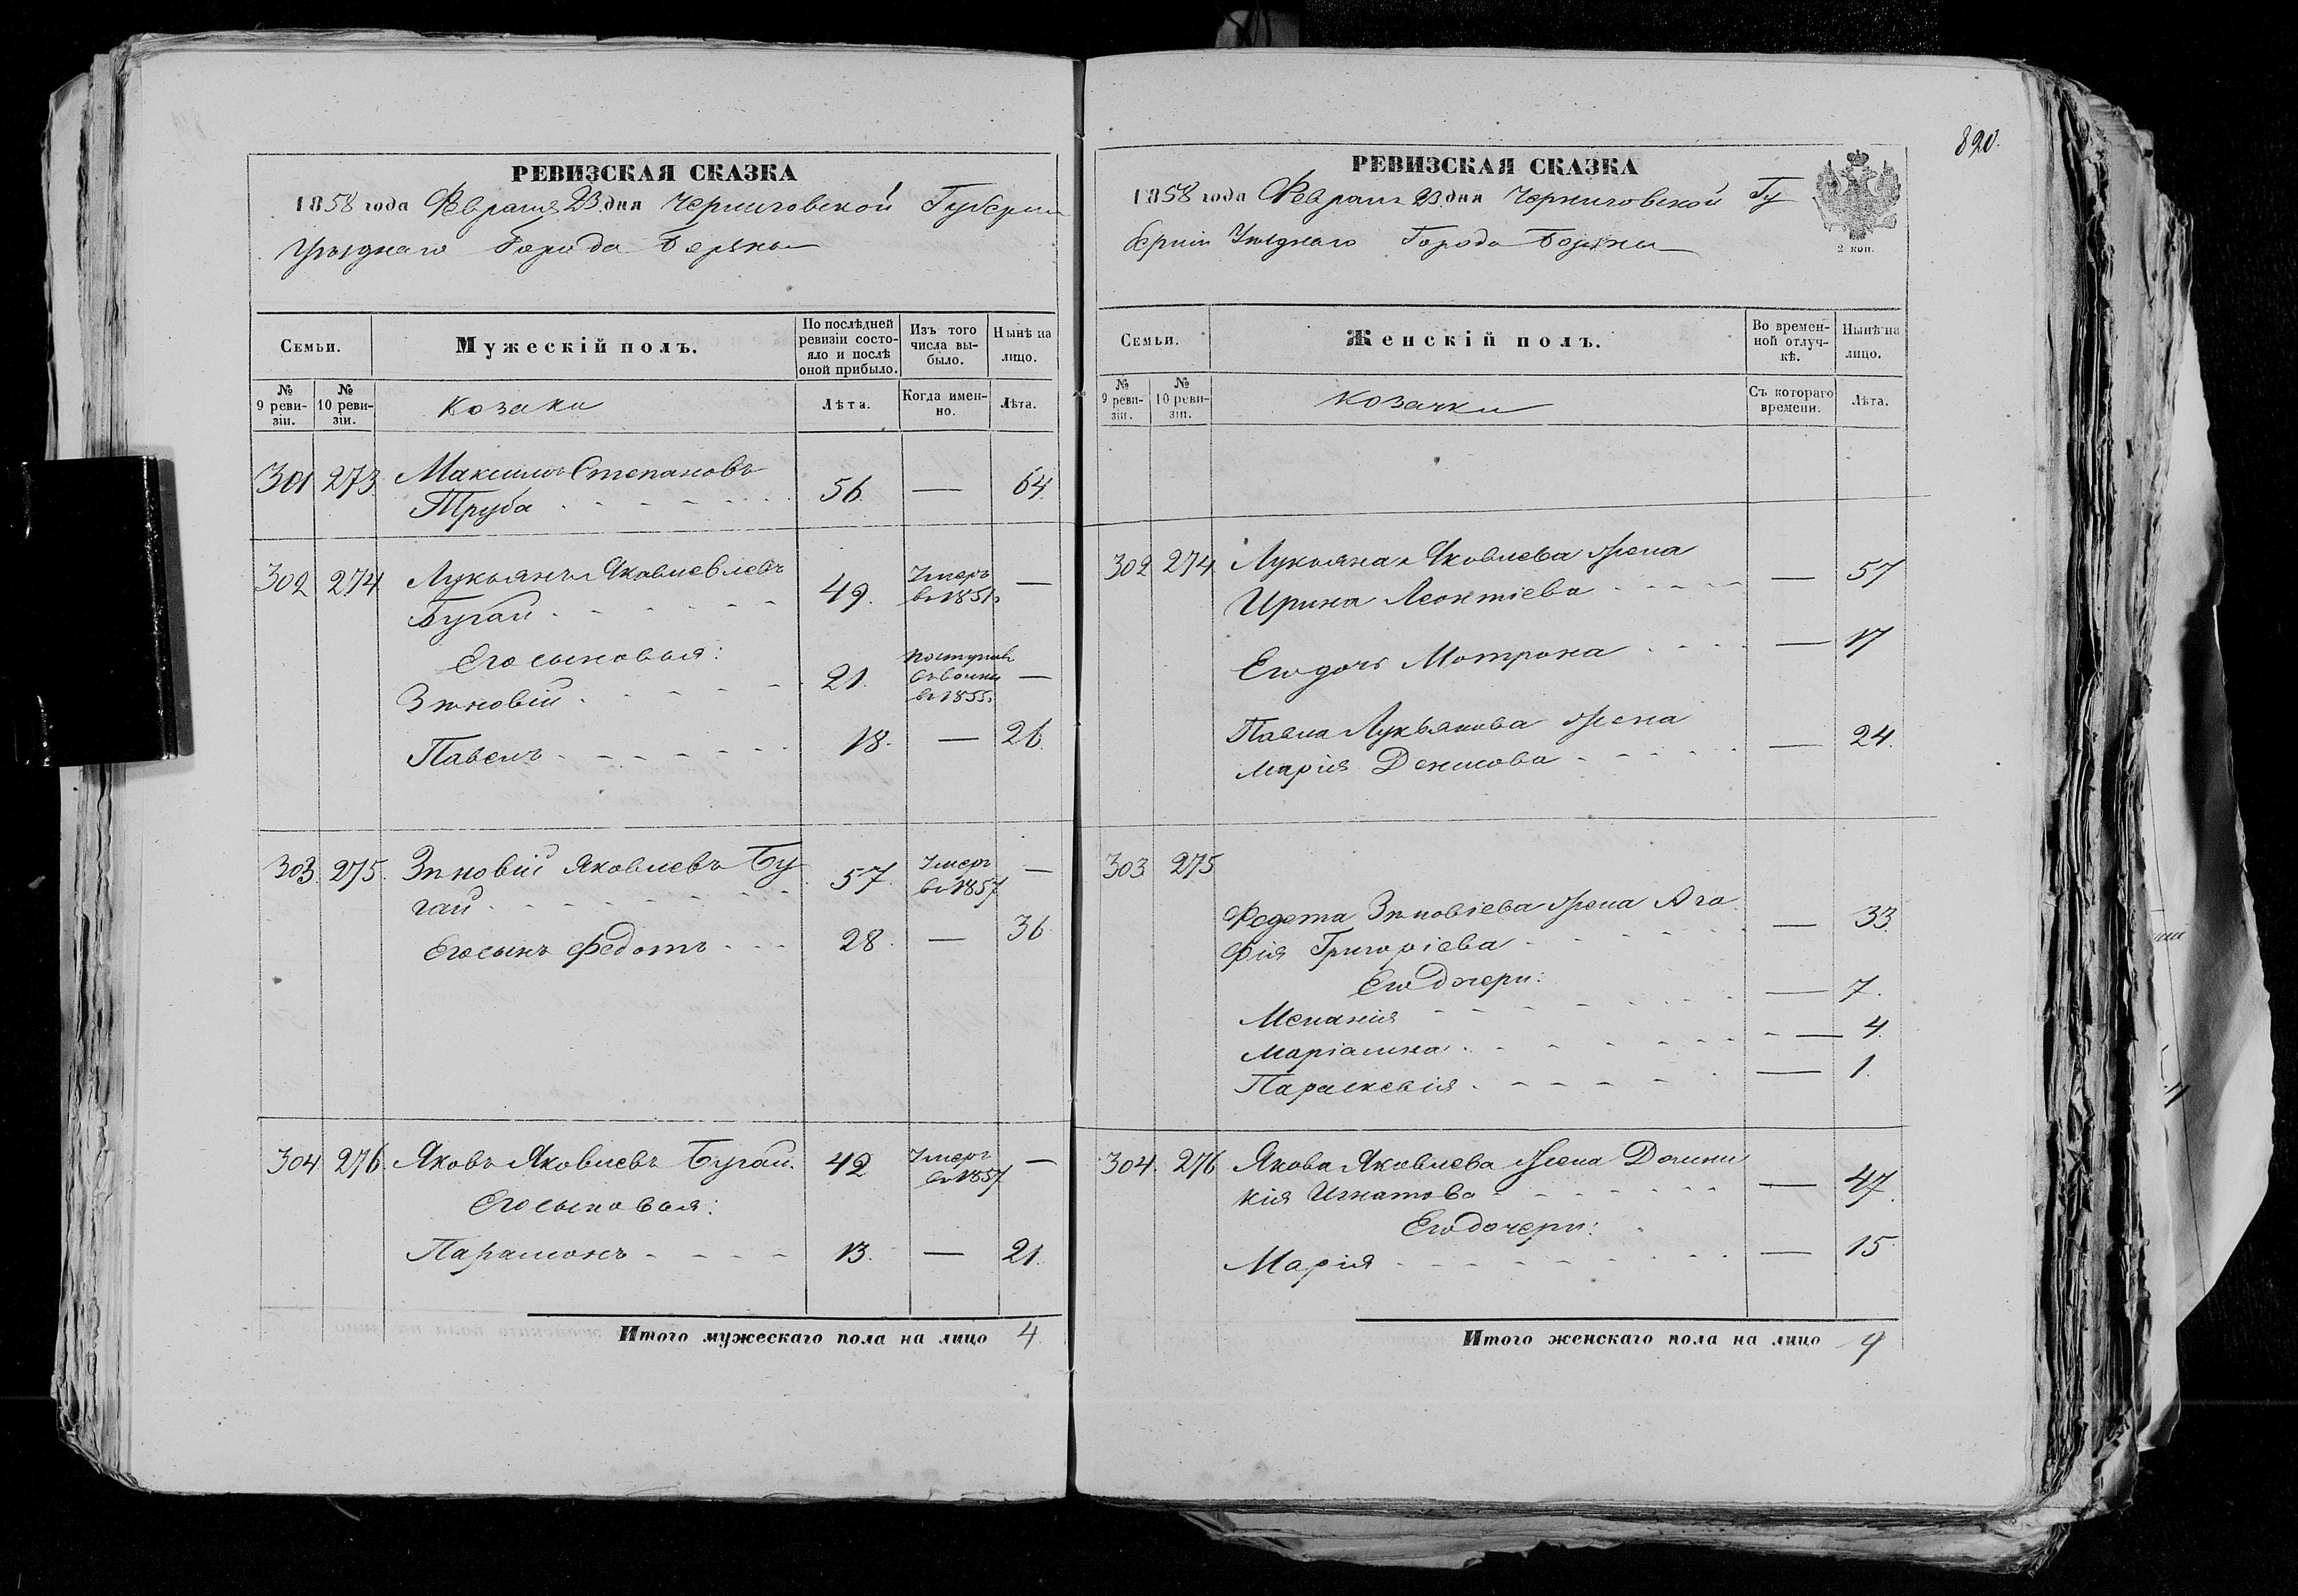 820.
РЕВИЗСКАЯ СКАЗКА
1858 года Февраля 23 дня Черниговской Губернии
Уѣзднаго Города Борзны
Семьи.
Мужескій полъ.
По послѣдней ревизіи состояло и послѣ оной прибыло.
Изъ того числа выбыло.
Нынѣ на лицо.
№ 9 ревизіи.
№ 10 ревизіи.
Козаки
Лѣта.
Когда именно.
Лѣта.
301 273 Максимъ Степановъ
Труба 56 — 64.
302 274 Лукьянъ Яковлевлевъ
Бугай 49. Умеръ въ 1851. —
Его сыновья:
Зѣновій 21. Поступил въ 1855. —
Павелъ 18. — 26.
303. 275. Зѣновій Яковлевъ Бу
гай 57. Умеръ въ 1857 —
Его сынъ Федотъ 28. — 36
304 276. Яковъ Яковлевъ Бугай. 42 Умеръ въ 1857 —
Его сыновья:
Парамонъ 13. — 21.
Итого мужескаго пола на лицо 4.
РЕВИЗСКАЯ СКАЗКА
1858 года Февраля 23 дня Черниговской Гу
берніи Уѣзднаго Города Борзны
2 коп.
Семьи.
Женскій полъ.
Во временной отлучкѣ.
Нынѣ на лицо.
№ 9 ревизіи.
№ 10 ревизіи.
Козачки
Съ котораго времени.
Лѣта.
302 274 Лукьяна Яковлева жена
Ирина Леонтіева — 57
Его дочь Мотрона — 17
Павла Лукьянова жена
Марія Денисова — 24.
303 275
Федота Зѣновіева жена Ага
фія Григоріева — 33.
Его дочери:
Меланія — 7.
Маріамна — 4.
Параскевія — 1.
304. 276. Якова Яковлева жена Доми
кія Игнатова — 47.
Его дочери:
Марія — 15.
Итого женскаго пола на лицо 9